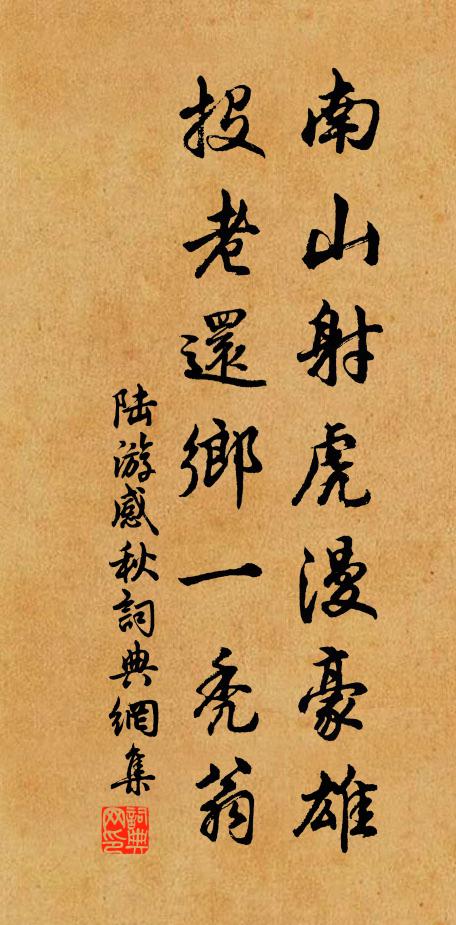 南山射虎漫豪雄
投老還鄉一禿翁
陸游感秋詞典網集
詞典網印